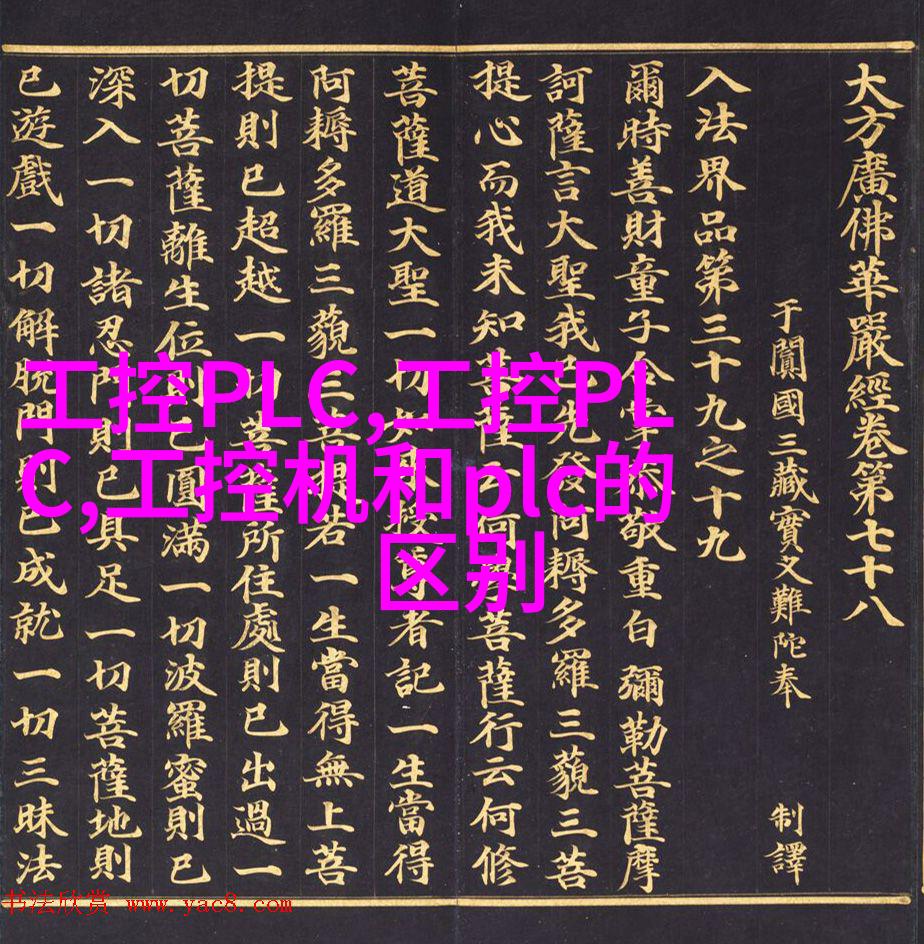 大方廣佛華嚴經卷第七十八
于闐國三藏實叉難陀奉 制譯
入法界品第三十九之十九
爾時善財童子合掌恭敬重白彌勒菩薩摩
訶薩言大聖我已先發阿耨多羅三藐三菩
提心而我未知菩薩云何學菩薩行云何修
菩薩道大聖一切如來授尊者記一生當得
阿耨多羅三藐三菩提若一生當得無上菩
提則已超越一切菩薩所住處則已出過一
切菩薩離生位則已圓滿一切波羅蜜則已
深入一切諸忍門則已具足一切菩薩地則
已遊戲一切解脫門則已成就一切三昧法
工控PLC,工控PL
C,工控机和plc的
区别
书法欣赏 www.yac8.com